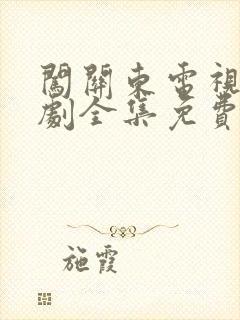 闖關東電視
劇全集免費
施霞